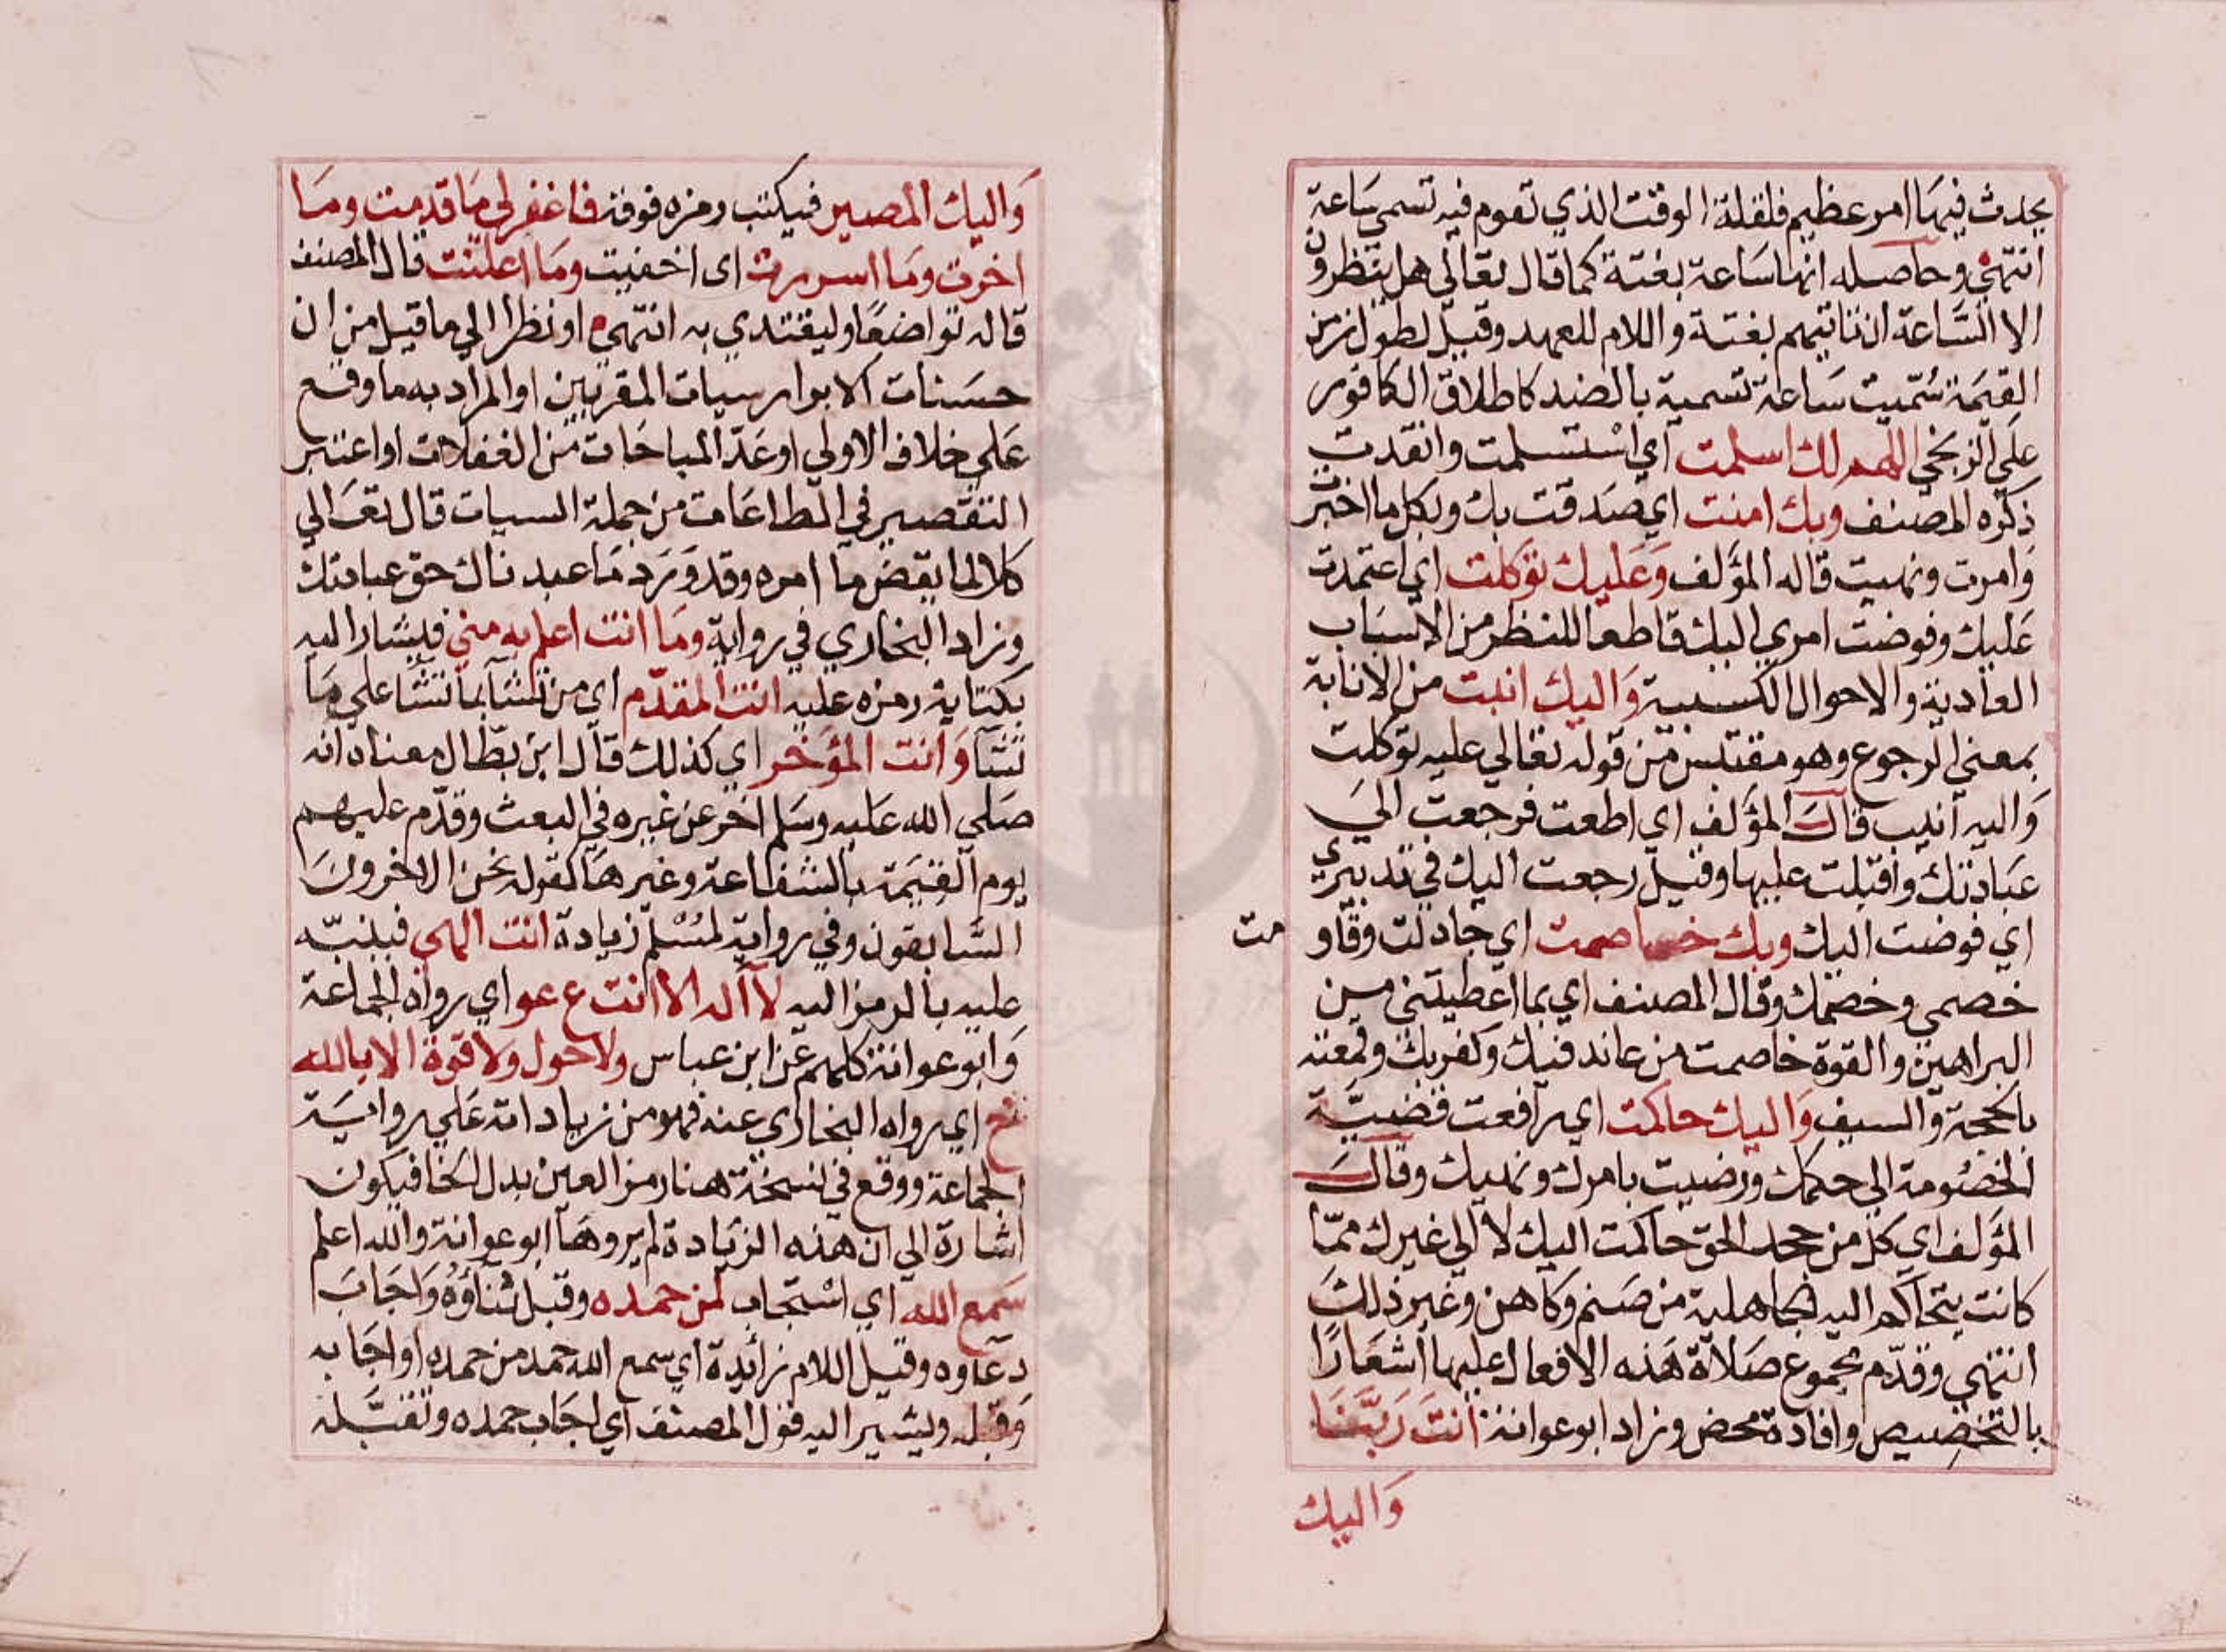 يحدث فيها امر عظيم فلقلة الوقت الذي تقوم فيه تسمي ساعة
انتهى وحاصله انها ساعة بغتة كما قال تعالي هل ينظرون
الا الساعة ان تاتيهم بغتة واللام للعهد وقيل لطول زمن
القيمة سميت ساعة تسمية بالضد كاطلاق الكافور
علي الزنجي اللهم لك اسلمت اي استسلمت وانقدت
ذكره المصنف وبك امنت اي صدقت بك وبكل ما اخبرت
وامرت ونهيت قاله المؤلف وعليك توكلت اي اعتمدت
عليك وفوضت امري اليك قاطعا للنظر من الاسباب
العادية والاحوال الكسبية واليك انبت من الانابة
بمعني الرجوع وهو مقتبس من قوله تعالي عليه توكلت
واليه انيب قال المؤلف اي اطعت فرجعت الي
عبادتك واقبلت عليها وقيل رجعت اليك في تدبيري
اي فوضت اليك وبك خاصمت اي جادلت وقاومت
خصمي وخصمك وقال المصنف اي بما اعطيتني من
البراهين والقوة خاصمت من عاند فيك وكفر بك وقمعته
بالحجة والسيف واليك حاكمت اي رافعت قضية
الخصومة الي حكمك ورضيت بامرك ونهيك وقال
المؤلف اي كل من جحد الحق حاكمت اليك لا الي غيرك مما
كانت يتحاكم اليه الجاهلية من صنم وكاهن وغير ذلك
انتهي وقدم مجموع صلاة هذه الافعال عليها اشعارا
بالتخصيص وافادة محض وزاد ابو عوانة انت ربنا
واليك
واليك المصير فيكتب رمزه فوقه فاغفر لي ما قدمت وما
اخرت وما اسررت اى اخفيت وما اعلنت قال المصنف
قاله تواضعا وليقتدي به انتهى او نظرا الي ما قيل من ان
حسنات الابرار سيات المقربين او المراد به ما وقع
علي خلاف الاولي او عد المباحات من الغفلات او اعتبر
التقصير في الطاعات من جملة السيات قال تعالي
كلا لما يقض ما امره وقد ورد ما عبدناك حق عبادتك
وزاد البخاري في رواية وما انت اعلم به مني فيشار اليه
بكتابة رمزه عليه انت المقدم اي من تشآ بما تشآ علي ما
تشآ وانت المؤخر اي كذلك قال ابن بطال معناه انه
صلي الله عليه وسلم اخر عن غيره في البعث وقدم عليهم
يوم القيمة بالشفاعة وغيرها كقوله نحن الاخرون
السابقون وفي رواية لمسلم زيادة انت الهي فينبه
عليه بالرمز اليه لا اله الا انت ع عو اي رواه الجماعة
وابو عوانة كلهم عن ابن عباس ولا حول ولا قوة الا بالله
خ اي رواه البخاري عنه فهو من زياداته علي رواية
الجماعة ووقع في نسخة هنا رمز العين بدل الخا فيكون
اشارة الي ان هذه الزيادة لم يروها ابو عوانة والله اعلم
سمع الله اي استجاب لمن حمده وقبل ثناؤه واجاب
دعاوه وقيل اللام زائدة اي سمع الله حمد من حمده او اجابه
وقبله ويشير اليه قول المصنف اي اجاب حمده وتقبله